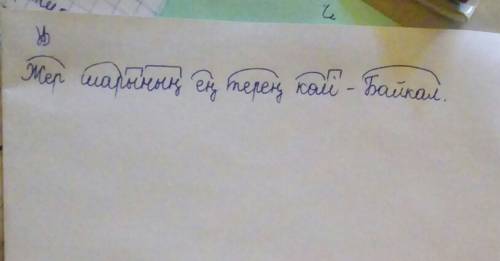 Жер шарының ең терең көлі - Байкал.